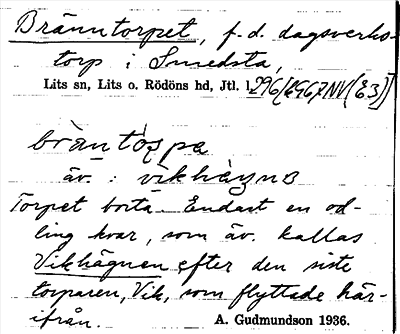 Bränntorpet, f.d. dagsverks-
torp i Smedsta,
Lits sn, Lits o. Rödöns hd, Jtl. l.
bràntòrpa
äv.:
Torpet borta. Endast en od-
ling kvar, som äv. kallas
Vikhägnen efter den siste
torparen, Vik, som flyttade här-
ifrån.
A. Gudmundson 1936.